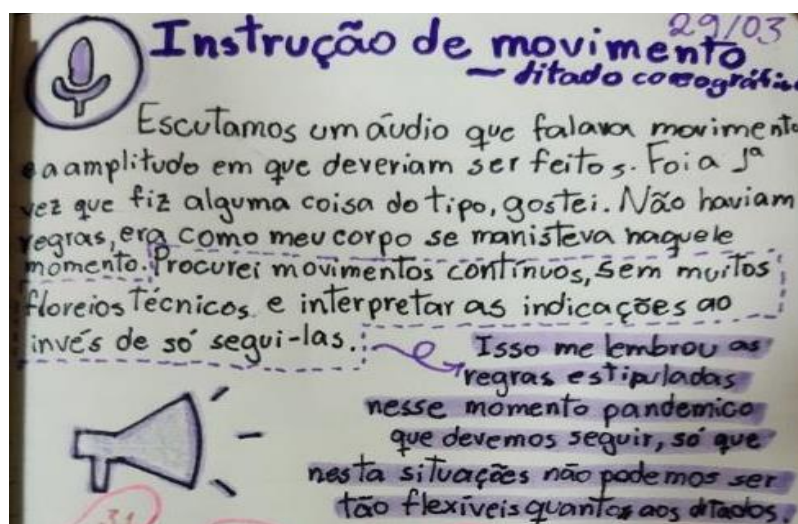 29/03
Instrução de movimento
— ditado coreográfi
Escutamos um áudio que falava movimento
e a amplitudo em que deveriam ser feitos. Foi a 1ª
vez que fiz alguma coisa do tipo, gostei. Não haviam
regras, era como meu corpo se manisteva naquele
momento. Procurei movimentos contínuos, sem muitos
floreios técnicos e interpretar as indicações ao
invés de só segui-las.
Isso me lembrou as
regras estipuladas
nesse momento pandemico
que devemos seguir, só que
nesta situações não podemos ser
tão flexíveis quantos aos ditados.
31